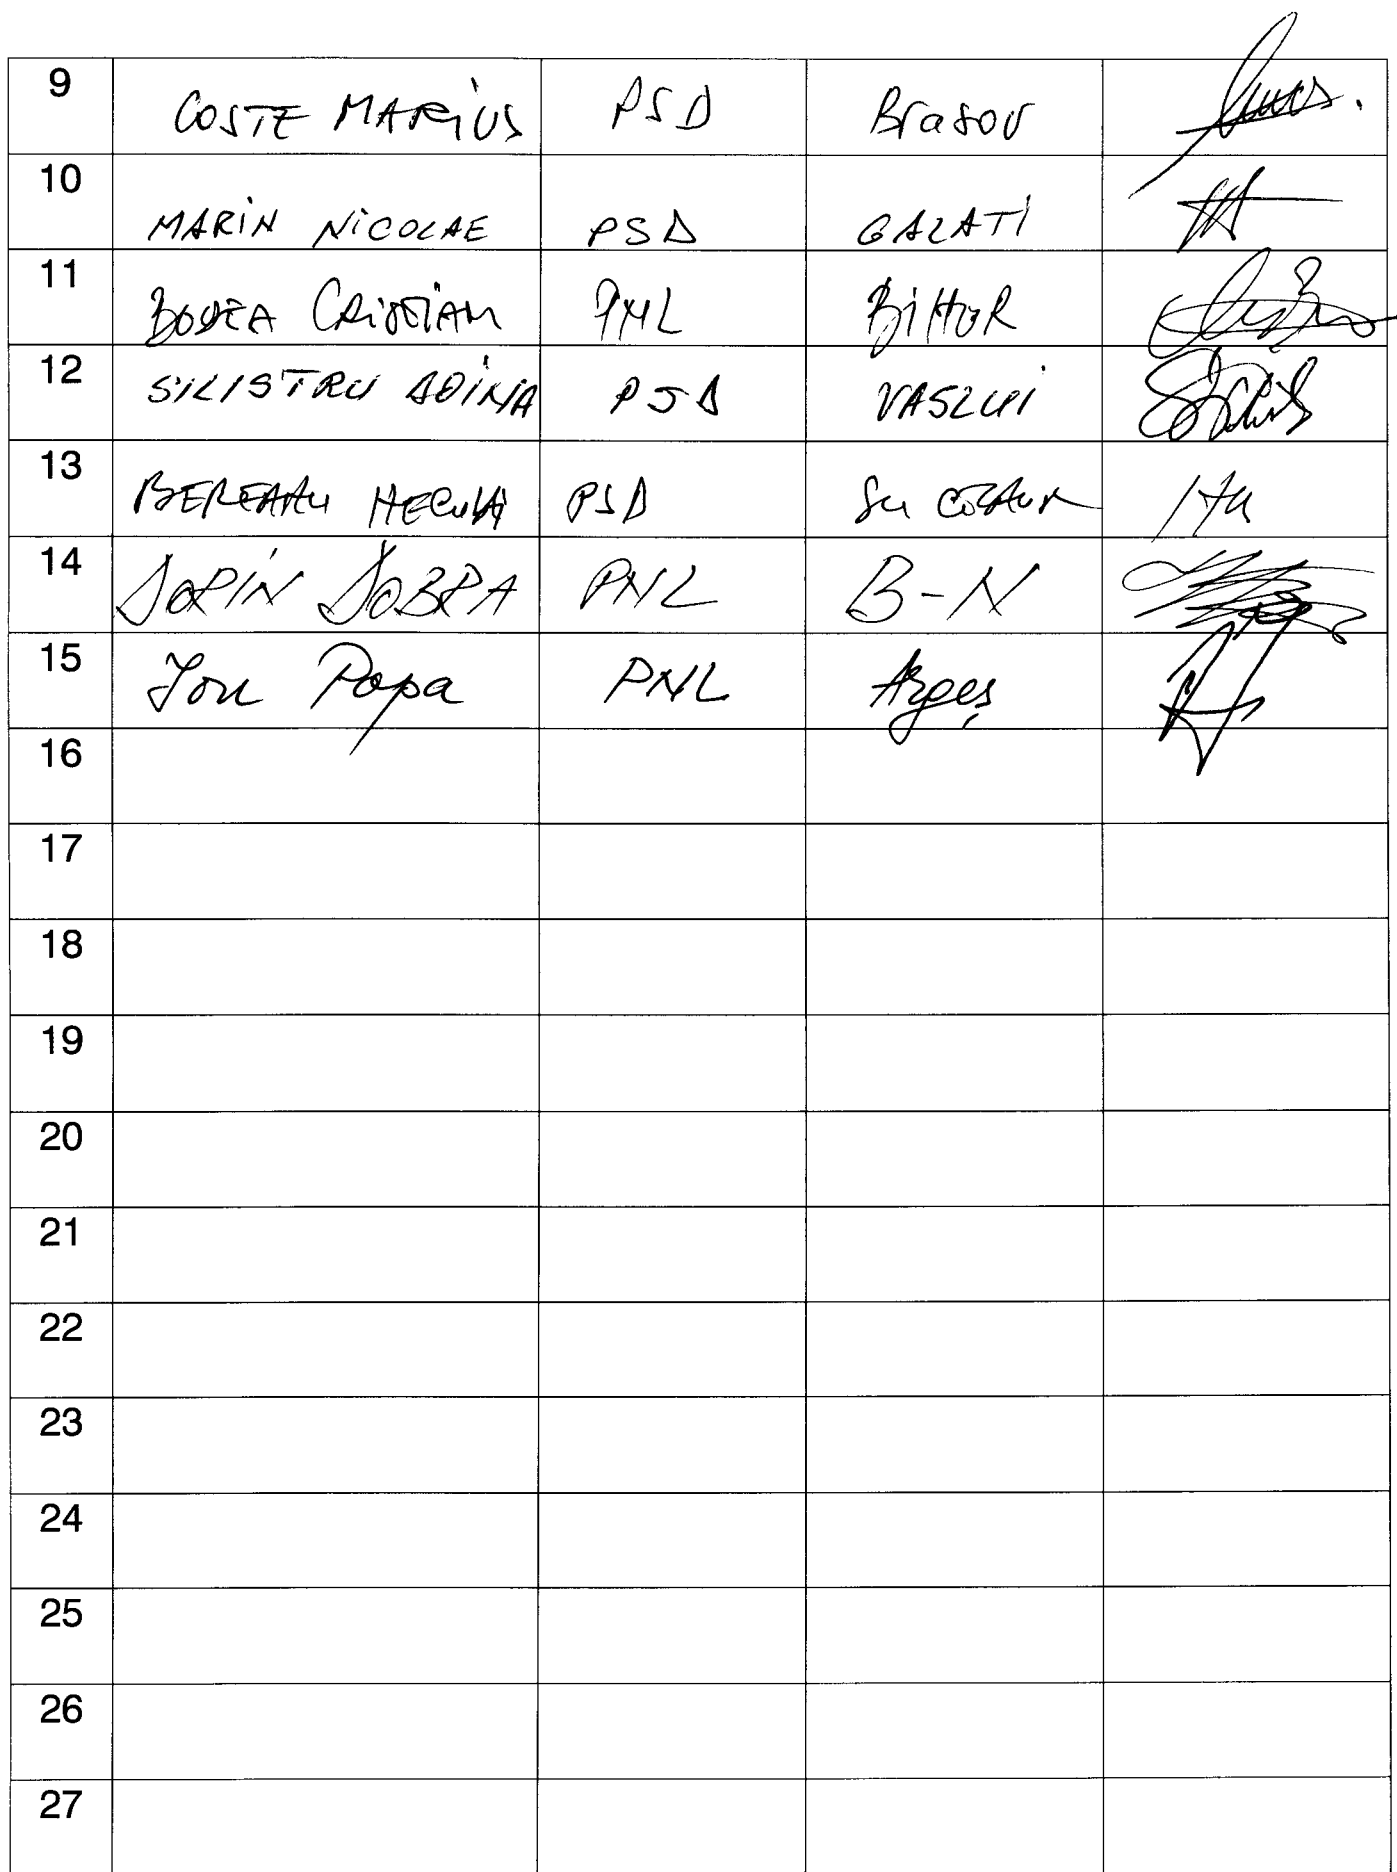 9 COSTE MARiUS PSD Brasov
10 MARiN NiCOLAE PSD GALATi
11 BODEA CRiSTiAN PNL BiHOR
12 SILISTRU ADINA PSD VASLUi
13 BEREANU NECULAi PSD
14 DORiN DOBRA PNL B-N
15 Ion Popa PNL Argeș
16
17
18
19
20
21
22
23
24
25
26
27